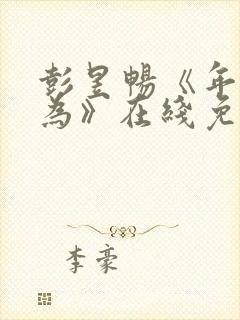 彭昱暢《年
為》在綫免
李豪